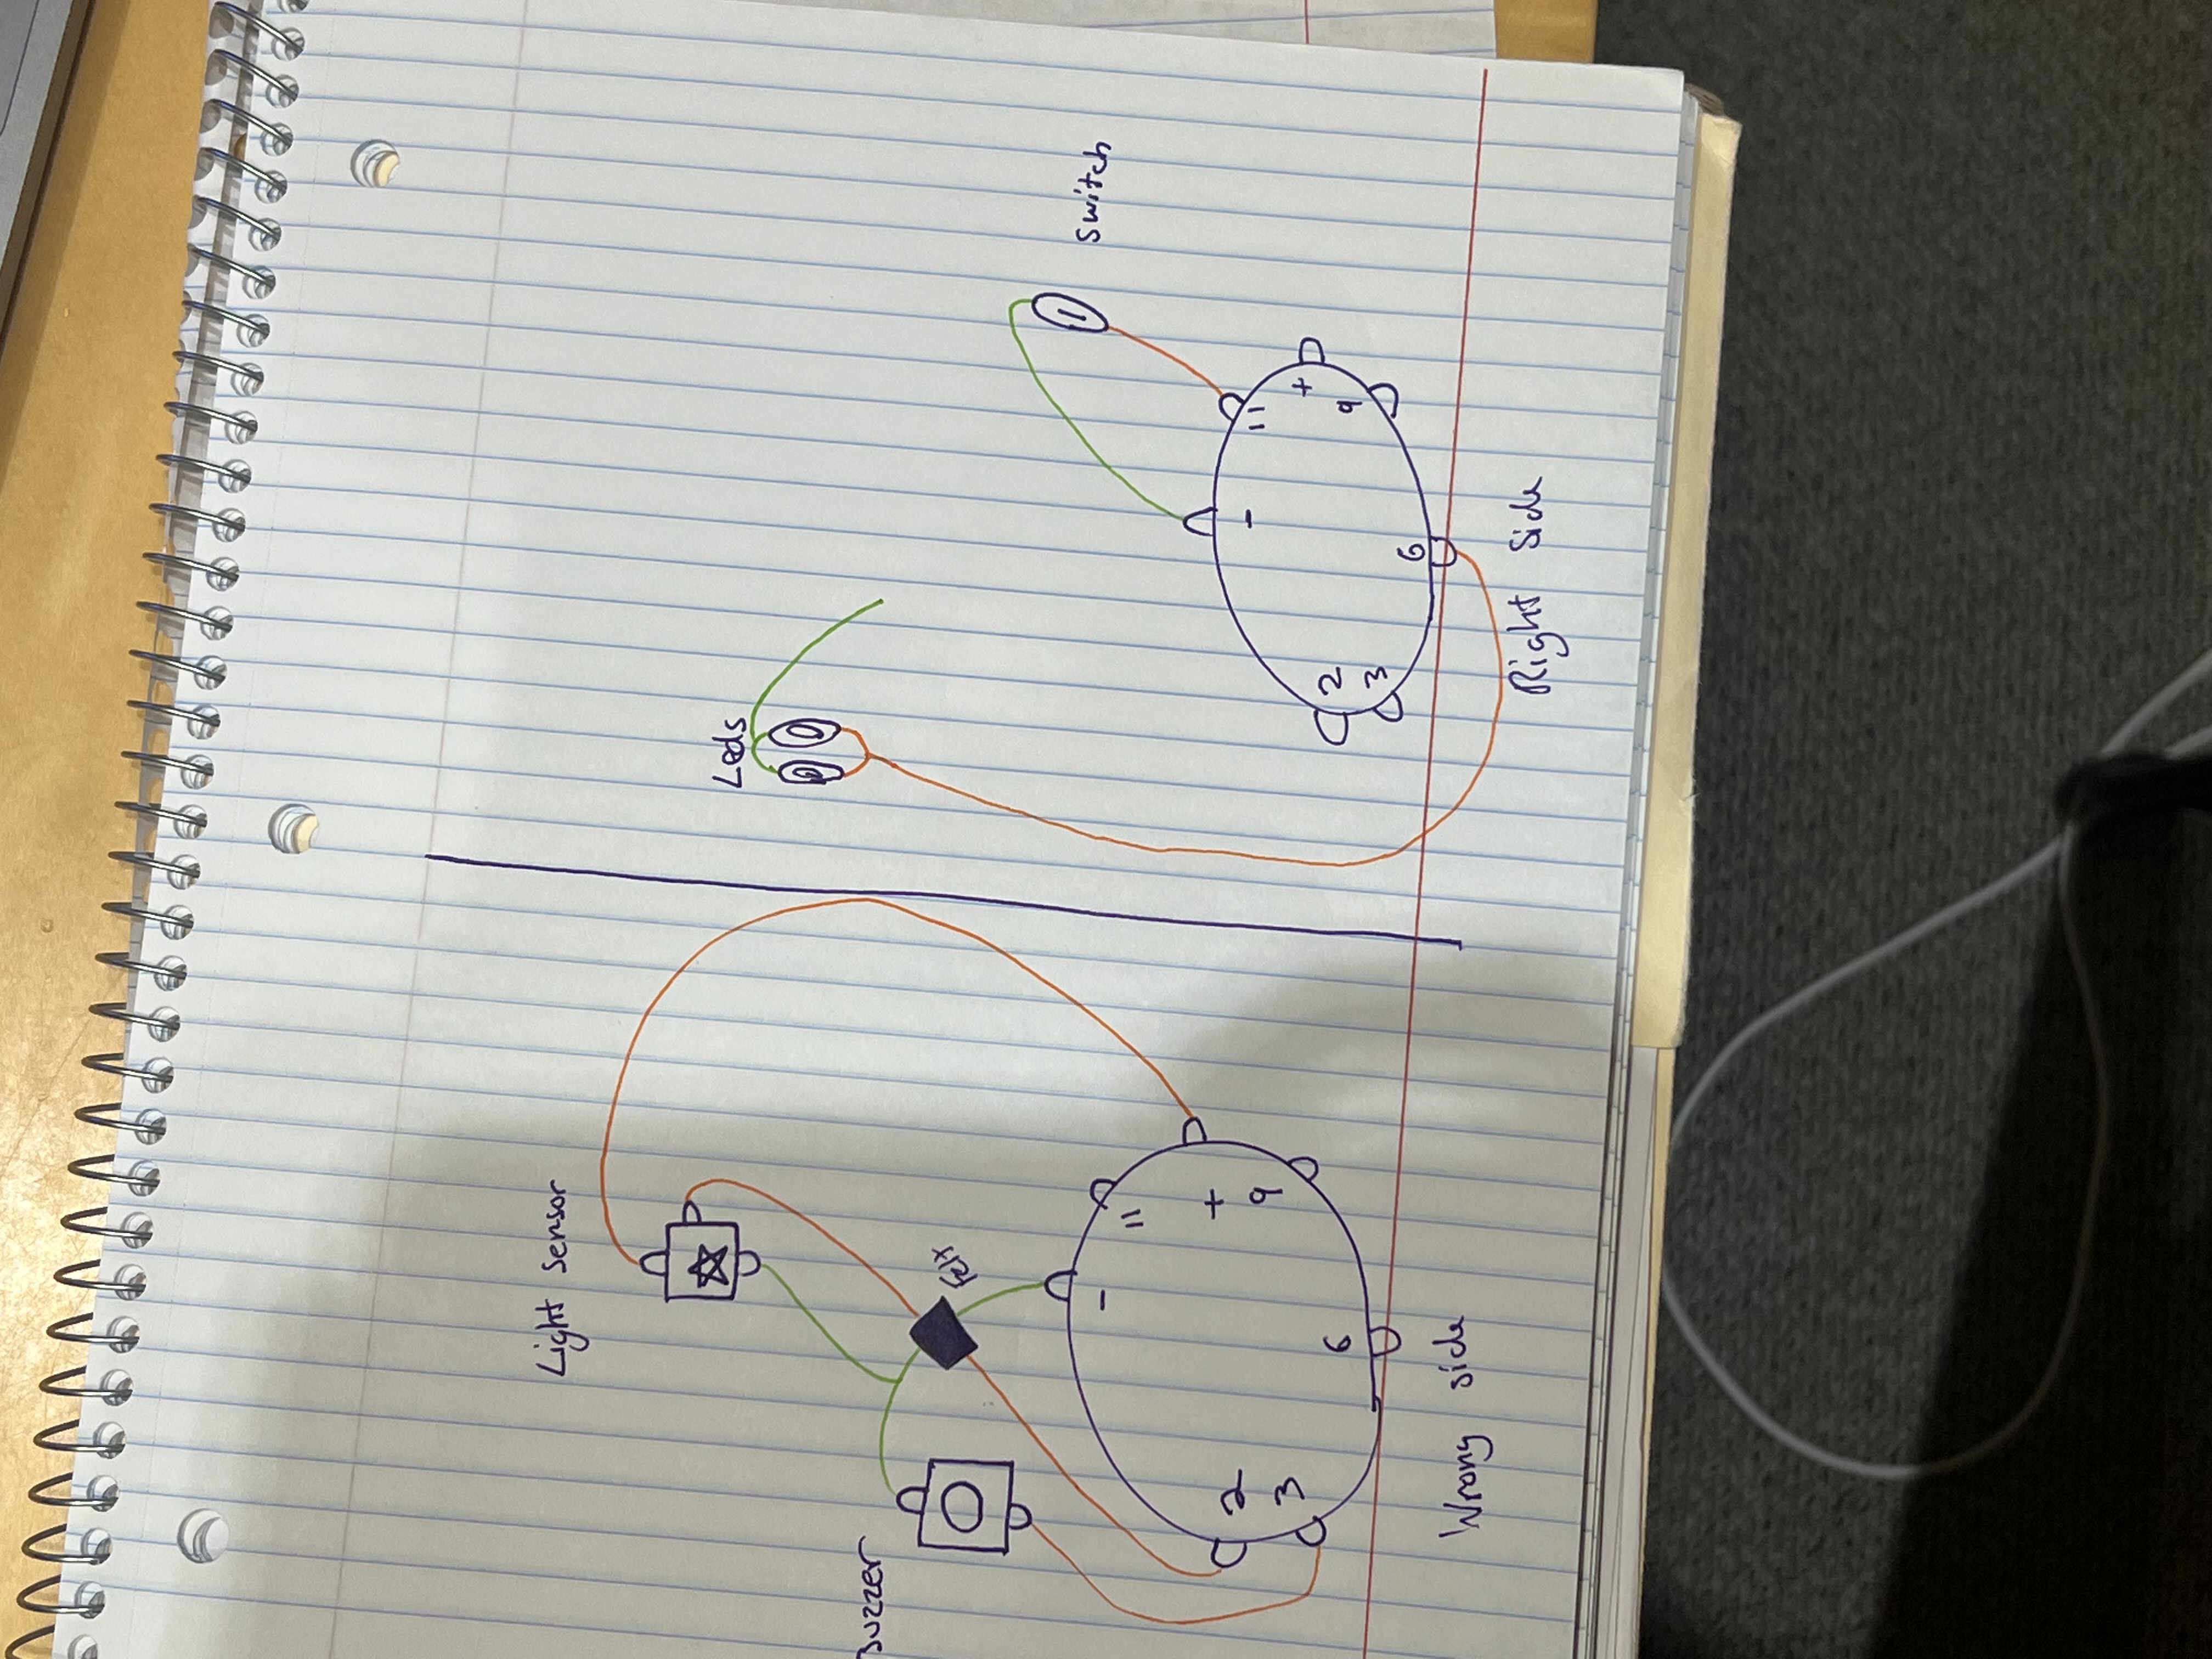 Light sensor
Buzzer
Felt
-
11
+
2
9
3
6
Wrong side
Leds
Switch
-
11
+
2
9
3
6
Right Side